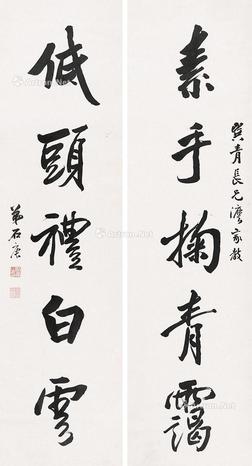 素手掬青靄
巽青長兄濂家教
低頭禮白雲
弟石庚